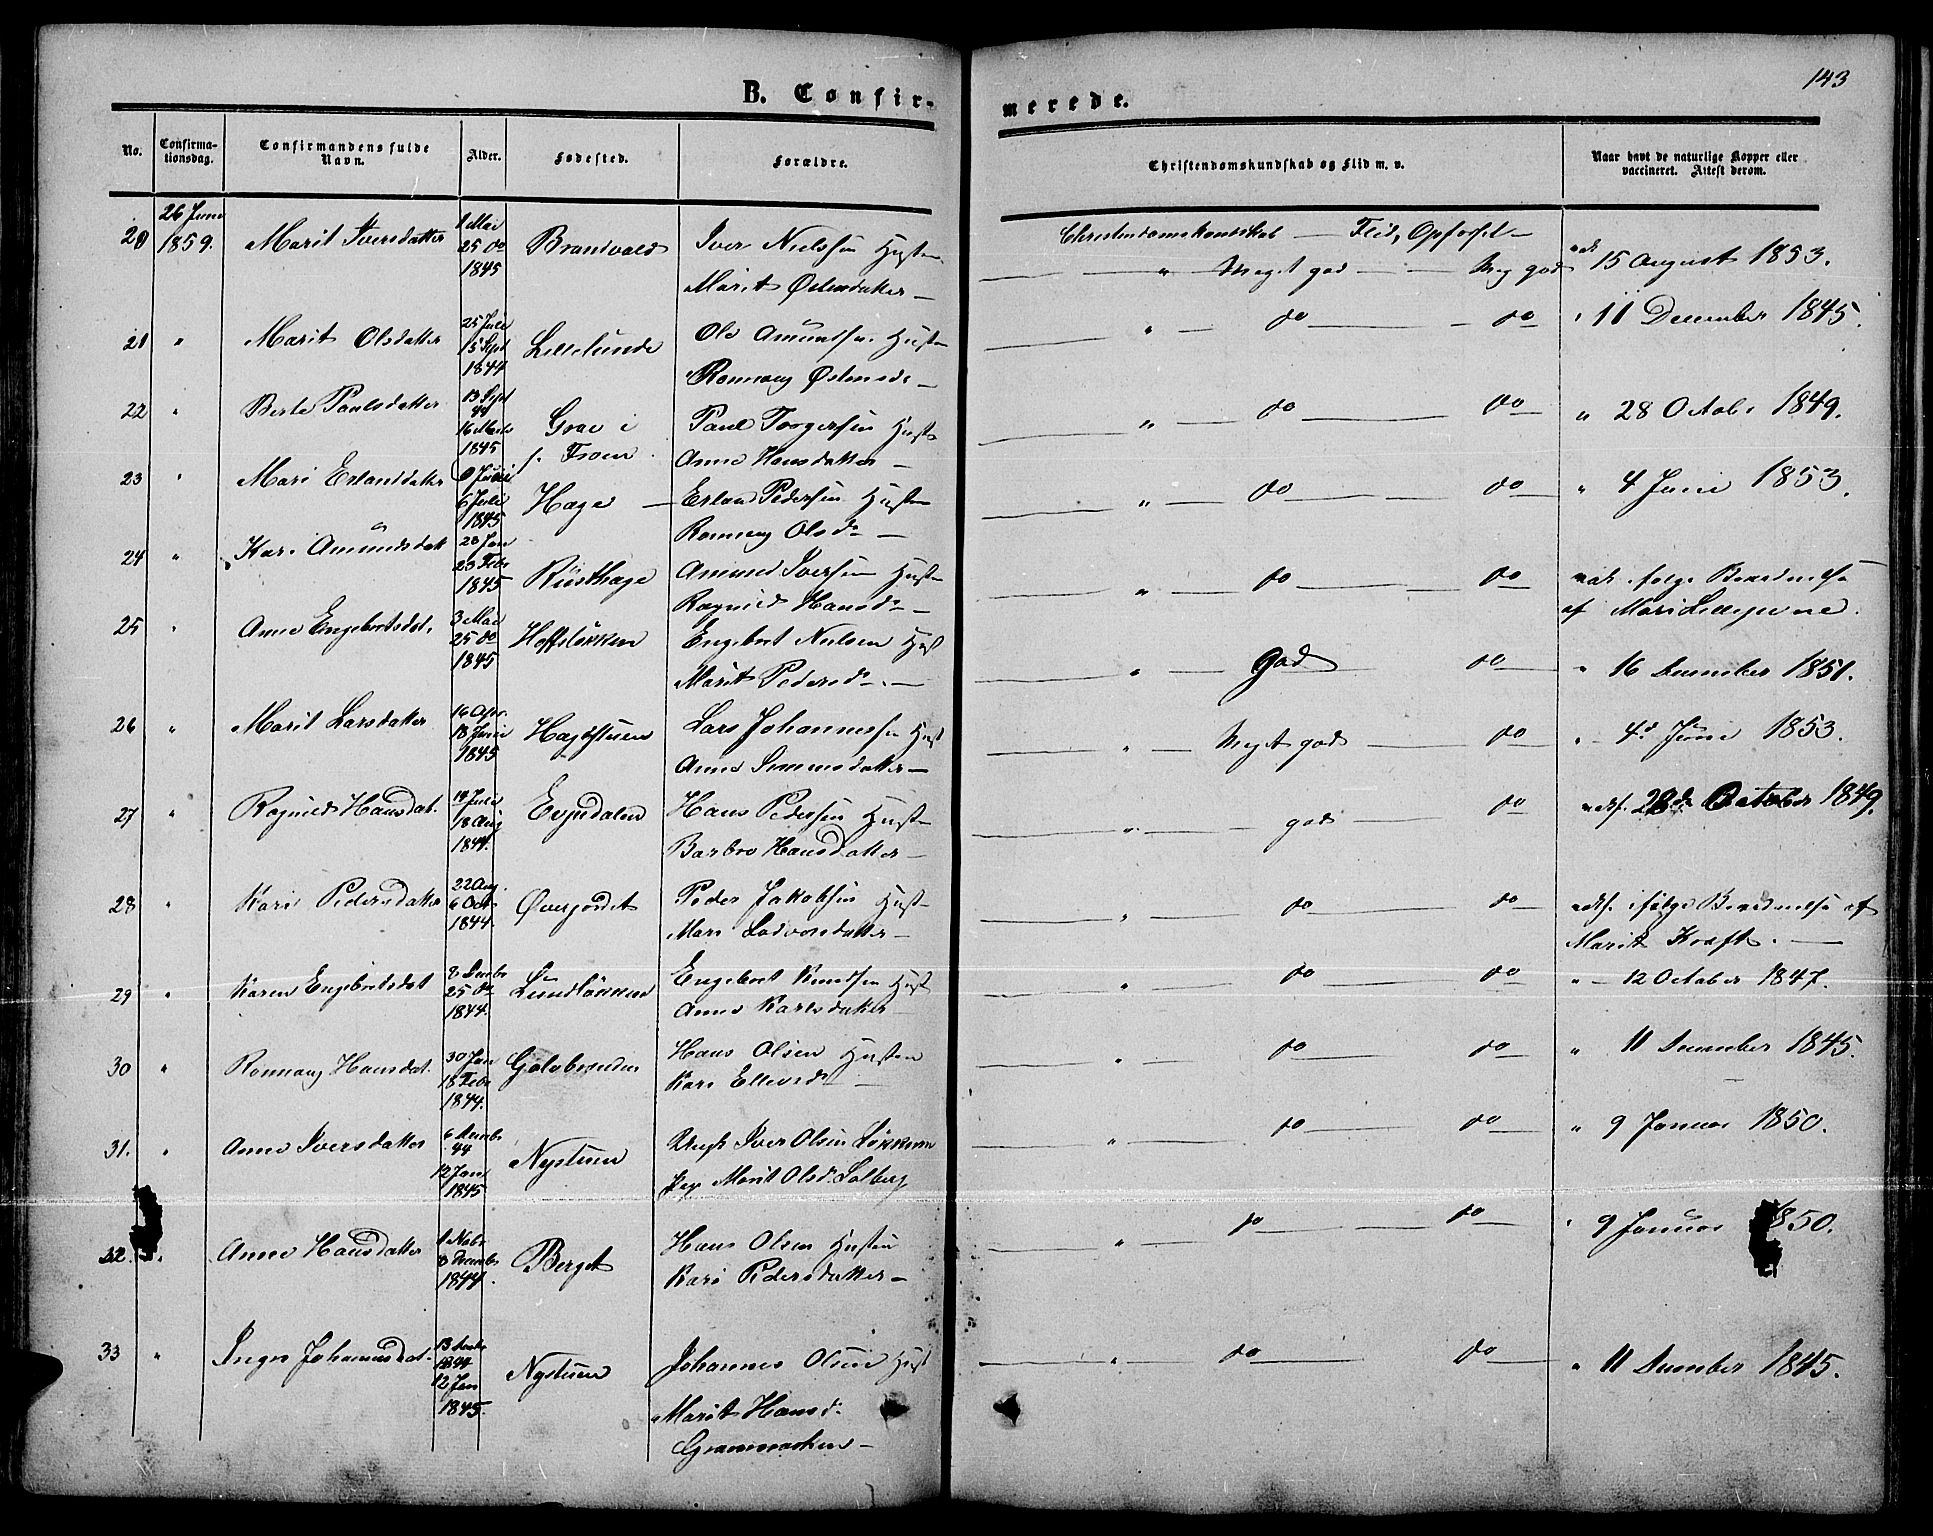 143
B. Confirmerede.
No. Confirmationsdag. Confirmandens fulde Navn. Alder. Fødested. Forældre. Christendomskundskab og Flid m. v. Naar havt de naturlige Kopper eller vaccineret. Attest derom.
20 26 Juni 1859. Marit Iversdatter 1 Mai 25 do 1845 Brandvold Iver Nielsen Hust
Marit Østensdatter — Christendomskundskab — Flid, Opførsel —
" — Meget god — Meg god 15 August 1853.
21 " Marit Olsdatter 25 Juli 15 Sept 1844 Lillelunde Ole Amundsen Hust
Ronnaug Østensd — " — do — do " 11 December 1845.
22 " Berte Paulsdatter 13 Sept 44 16 Marts 1845 Grae i f. Froen Paul Torgersen Hust
Anne Hansdatter — " do — do " 28 Octobr 1849.
23 " Mari Erlandsdatter 6 Juli 1845 Hage — Erland Pedersen Hust
Ronnaug Olsd — " — do — do " 4 Juni 1853.
24 " Kari Amundsdatt 23 Jan 23 Febr 1845 Rusthage Amund Iversen Hust
Ragnild Hansd — " — do — do vac. ifølge Beredning
af Mari
25 " Anne Engebretsdat. 3 Mai 25 do 1845 Hoffsløkken Engebret Nielsen Hust
Marit Pedersd — " — god — do — " 16 December 1851.
26 " Marit Larsdatter 16 Apr. 18 Juni 1845 Hagestuen Lars Johannessen Hust
Anne Simensdatter — " — Meget god — do — " 4de Juni 1853.
27 " Ragnild Hansdat. 14 Juli 18 Aug 1844. Evjudalen Hans Pedersen Hust
Barbro Hansdatter — " — god — do — 28de October 1849.
28 " Kari Pedersdatter 22 Aug. 6 Oct 1844 Øvergjordet Peder Jakobsen Hust
Mari — " — do — do — ifølge af
Marit Kraft. —
29 " Karen Engebretsdat 8 Decbr 25 do 1844. Lundløkken Engebret Knudsen Hust
Anne Karlsdatter — " — do — do — " — 12 October 1847.
30 " Ronnaug Hansdat. 30 Jan 18 Febr 1844. Golobranden Hans Olsen Husten
Kari Ellevsd — " — do — do — " 11 December 1845.
31. " Anne Iversdatter 6 Decmbr 44 12 Jan 1845 Nystuen Ungk Iver Olsen Løkken
Pige Marit Olsd. Solberg " — do — do — " 9 Januar 1850.
32. " Anne Hansdatter 1 Nobr 8 Decmbr 1844. Berget Hans Olsen Husten
Kari Pedersdatter — " — do — do — " 9 Januar 1850.
33 " Inger Johannesdat. 13 Decbr 1844 12 Jan 1845. Nystuen Johannes Olsen Hust
Marit Hansd.
— " — do — do — " 11 December 1845.